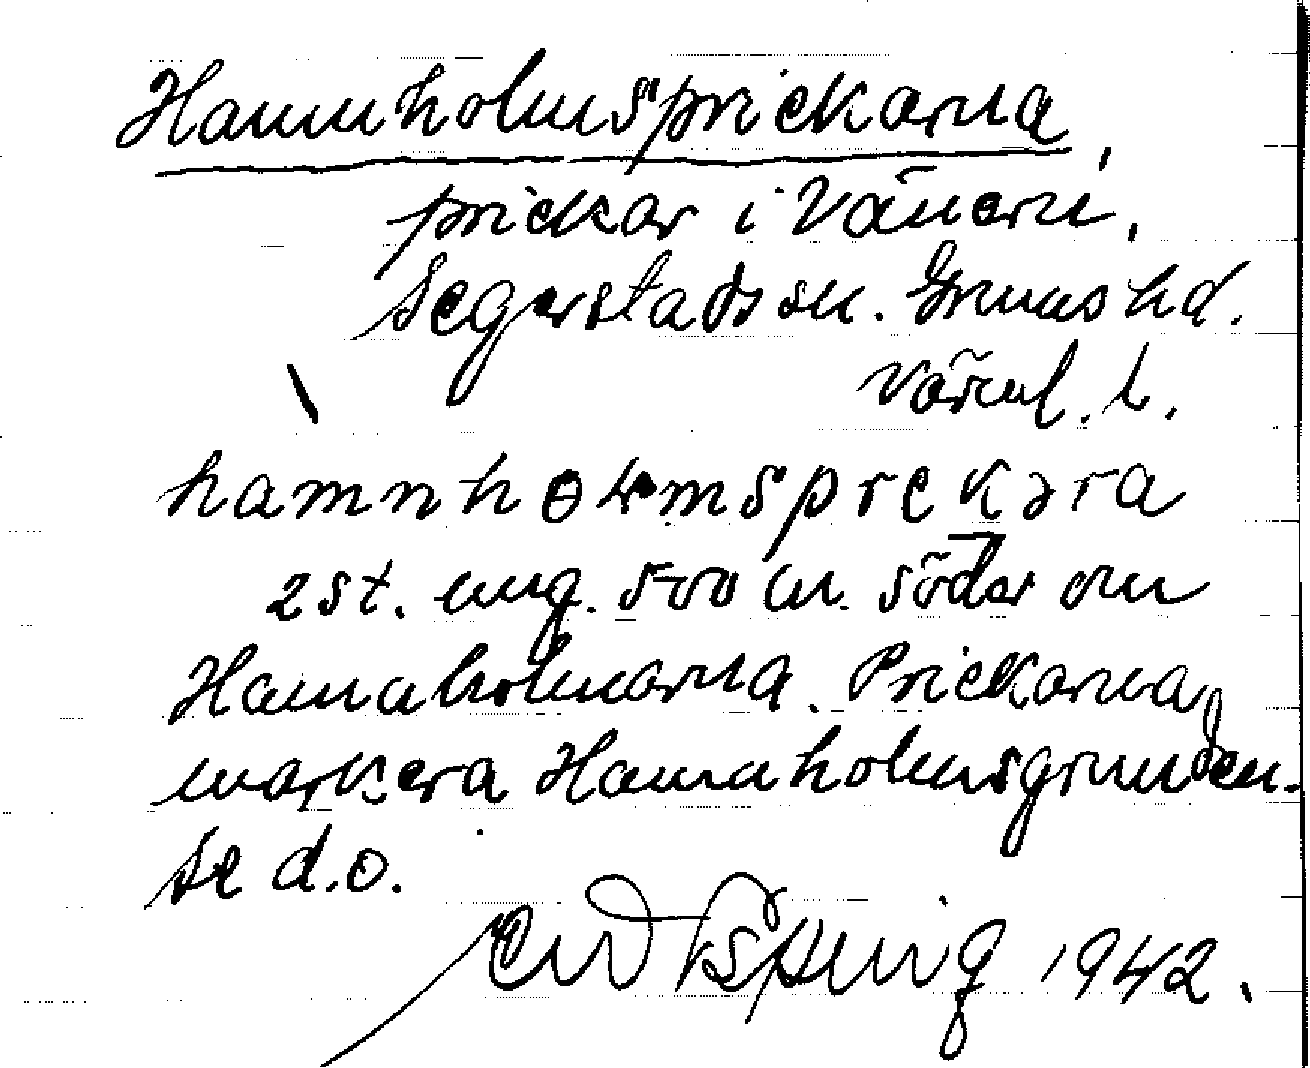 Hamnholmsprickarna,
prickar i Vänern,
Segerstads sn. Grums hd.
Värml. l.
hamnholmsprekəra
2 st. omg. 500 m. söder om
Hamnholmarna. Prickarna
markera Hamnholmsgrunden.
Se d.o.
1942.